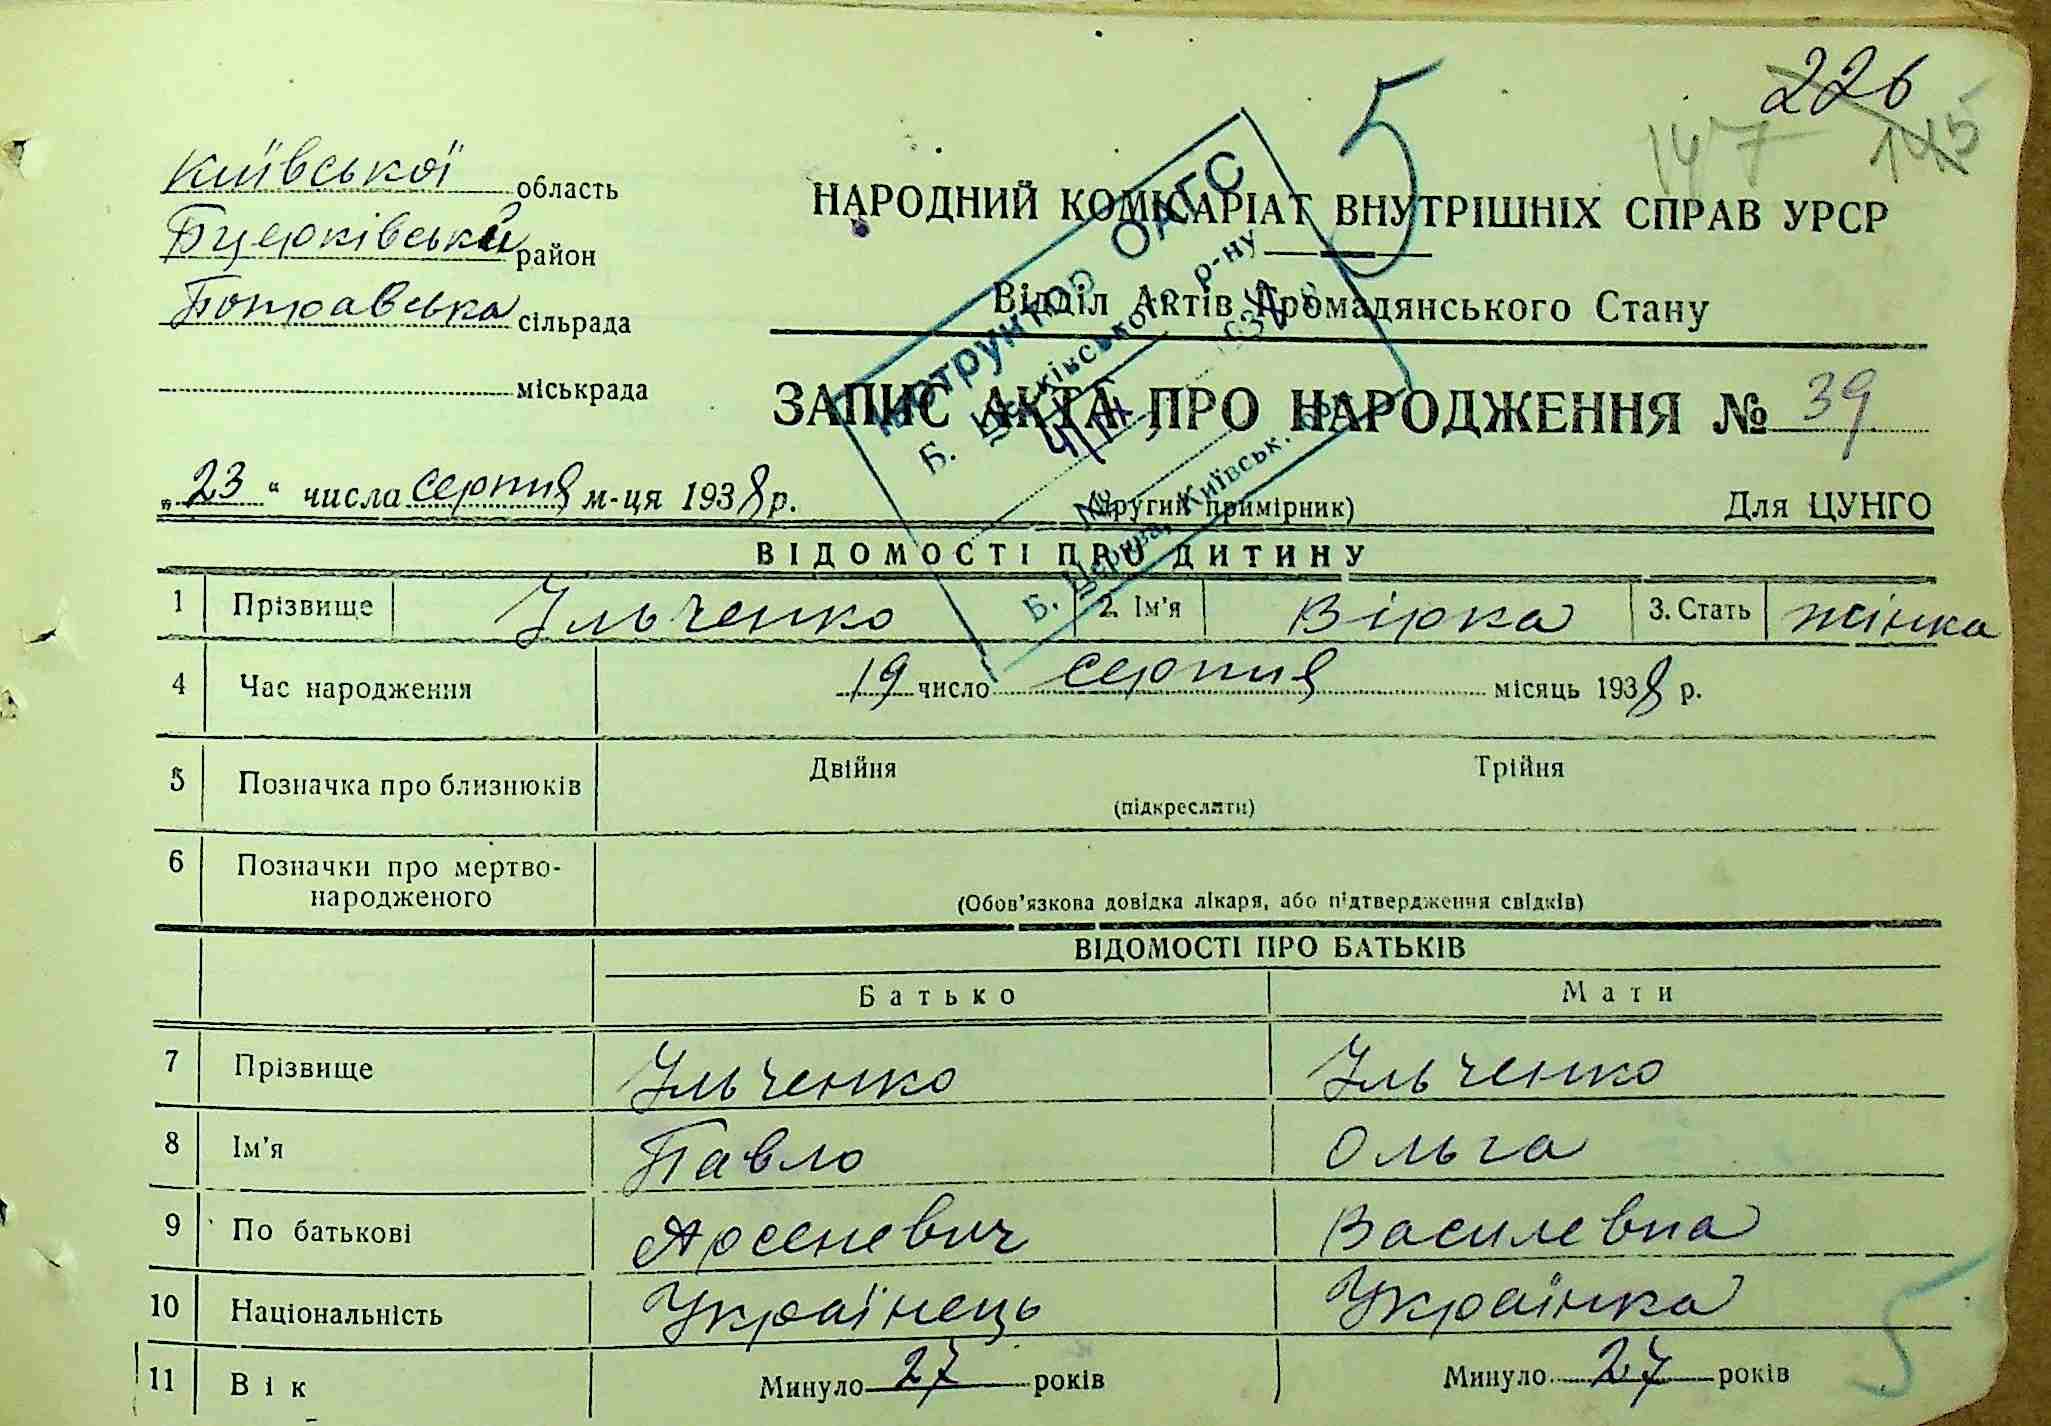 226
147 145
5
Київської область
Бцерківський район
Потравська сільрада
міськрада
НАРОДНИЙ КОМІСАРІАТ ВНУТРІШНІХ СПРАВ УРСР
Відділ Актів Громадянського Стану
ЗАПИС АКТА ПРО НАРОДЖЕННЯ № 39
„23“ числа серпня м-ця 1938 р.
(Другий примірник)
Для ЦУНГО
Інструктор ОАГС
Б. Церківського р-ну
193
№
Б. Церква, Київськ.
ВІДОМОСТІ ПРО ДИТИНУ
1 Прізвище Ільченко 2. Ім'я Вірка 3. Стать жінка
4 Час народження 19 число серпня місяць 1938 р.
5 Позначка про близнюків Двійня Трійня
(підкреслити)
6 Позначки про мертво-
народженого
(Обов'язкова довідка лікаря, або підтвердження свідків)
ВІДОМОСТІ ПРО БАТЬКІВ
Батько Мати
7 Прізвище Ільченко Ільченко
8 Ім'я Павло Ольга
9 По батькові Арсеневич Василевна
10 Національність Українець Українка
11 Вік Минуло 27 років Минуло 27 років
5